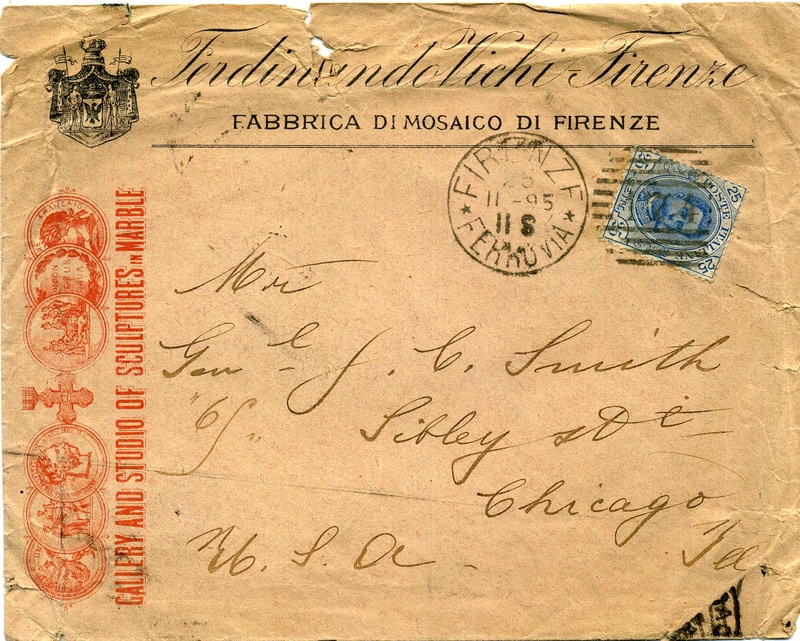 Ferdinando Vichi - Firenze
FABBRICA DI MOSAICO DI FIRENZE
FIRENZE
11-95
11 S
FERROVIA
25
POSTE ITALIANE
25
25
GALLERY AND STUDIO OF SCULPTURES IN MARBLE
Genl J. C. Smith
65
Sibley St
Chicago
U. S. A.